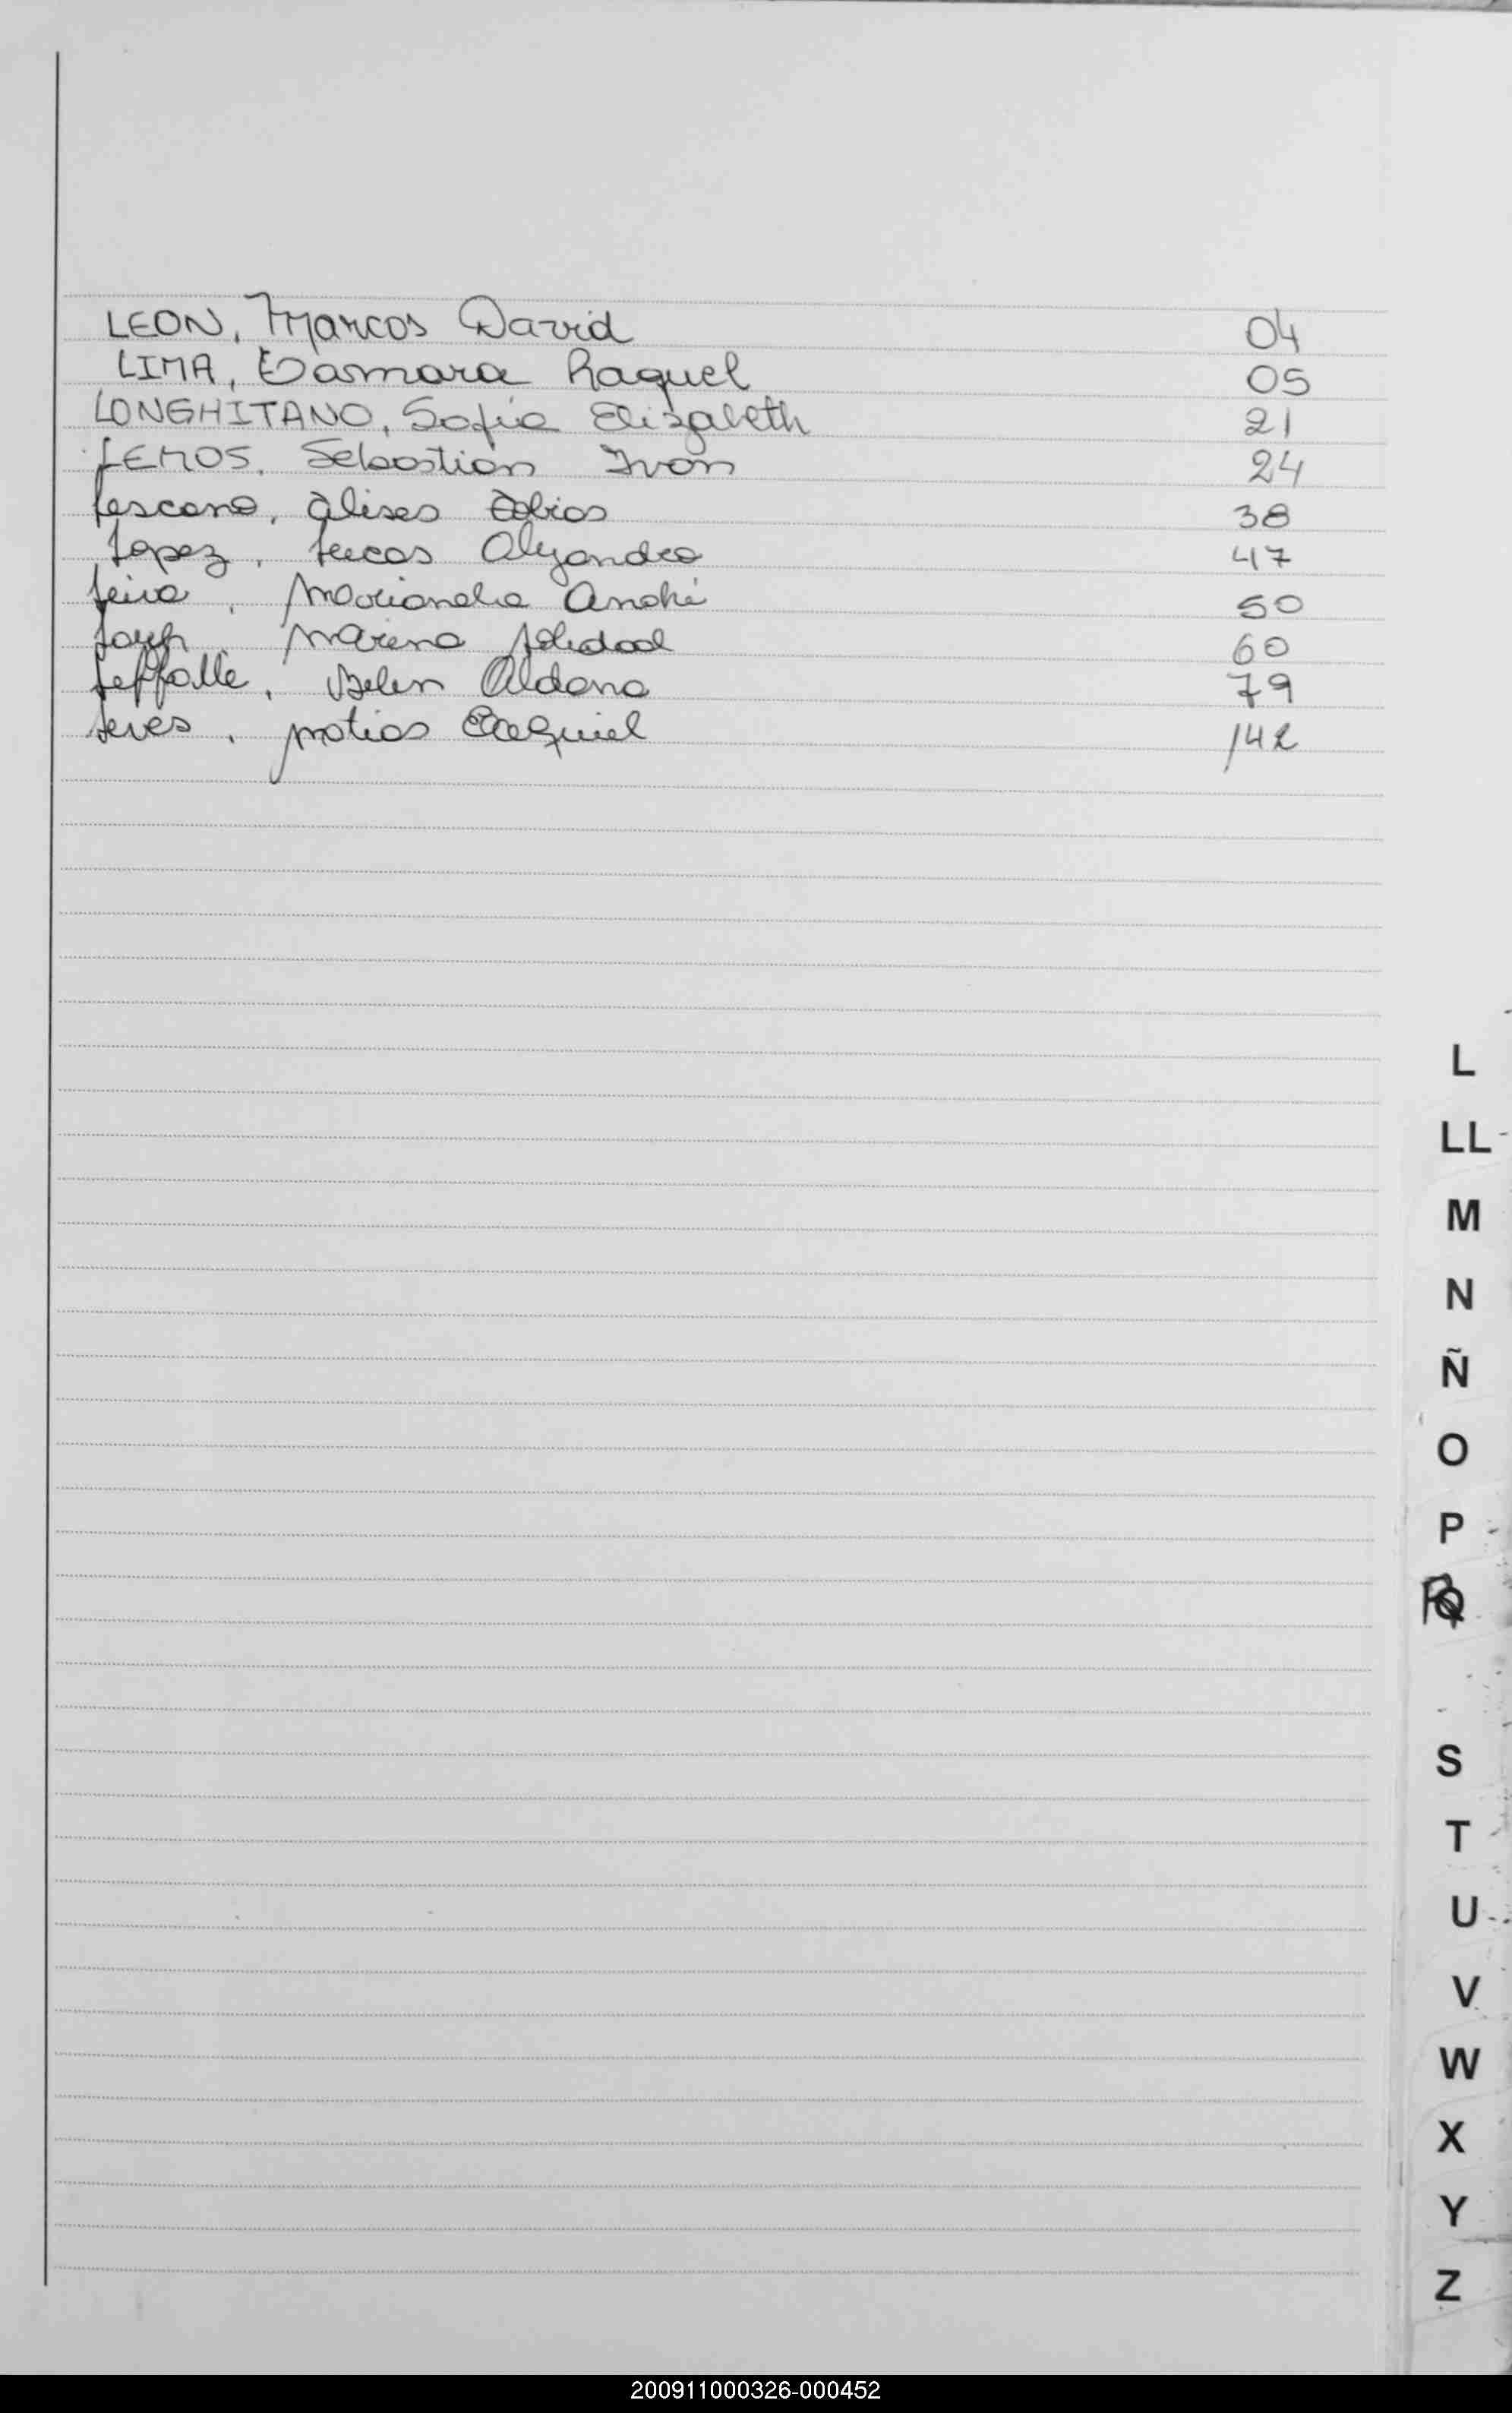 LEON, Marcos David 04
LIMA, Damara Raquel 05
LONGHITANO, Sofia Elizabeth 21
LEMOS, Sebastian Ivan 24
Lescano, Tobias 38
Lopez, Lucas Alejandro 47
Leiva, 50
Marena Soledad 60
Leffalle, Belen Aldana 79
Leves, Matias Ezequiel 142
L
LL
M
N
Ñ
O
P
RQ
S
T
U
V
W
X
Y
Z
200911000326-000452